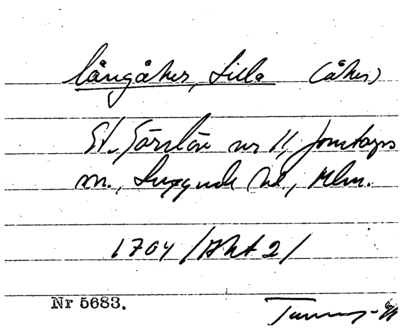 Långåker, Lilla (åker)
St. Färslöv nr 11, Jonstorps
sn., Luggude hd., Mlm.
1704 /Akt 2/
Nr 5683.